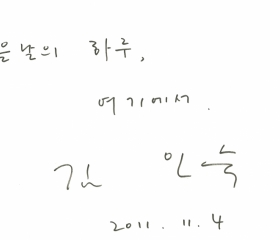 을날의 하루,
여기에서.
김 인숙
2011. 11. 4